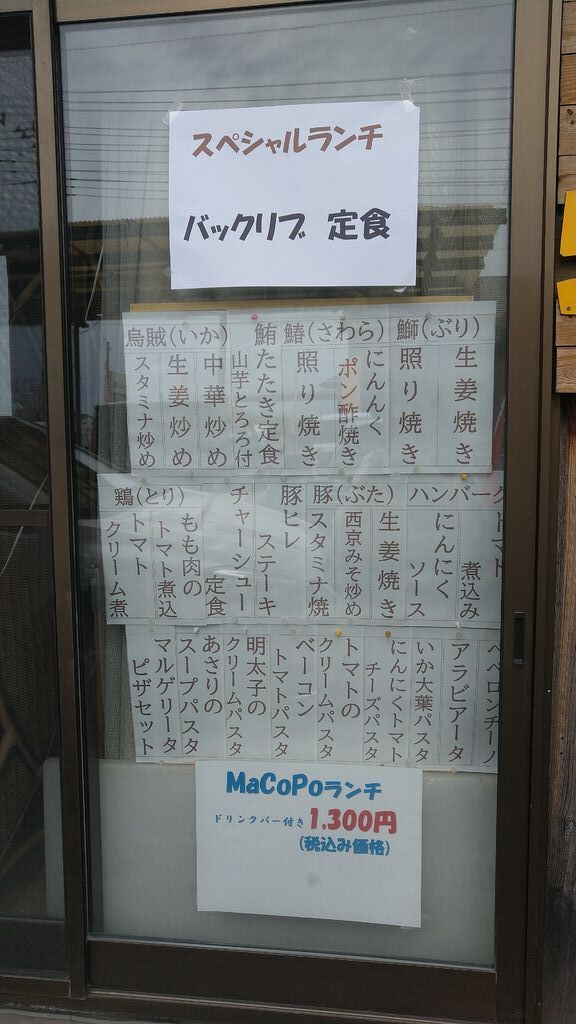 スペシャルランチ
バックリブ 定食
鰤(ぶり)
生姜焼き
照り焼き
鰆(さわら)
にんんく
ポン酢焼き
照り焼き
鮪
たたき定食
山芋とろろ付
烏賊(いか)
中華炒め
生姜炒め
スタミナ炒め
ハンバーク
トマト
煮込み
にんにく
ソース
豚(ぶた)
生姜焼き
西京みそ炒め
スタミナ焼
豚ヒレ
ステーキ
チャーシュー
定食
鶏(とり)
もも肉の
トマト煮込
トマト
クリーム煮
ペペロンチーノ
アラビアータ
いか大葉パスタ
にんにくトマト
チーズパスタ
トマトの
クリームパスタ
ベーコン
トマトパスタ
明太子の
クリームパスタ
あさりの
スープパスタ
マルゲリータ
ピザセット
MaCoPoランチ
ドリンクバー付き 1,300円
(税込み価格)